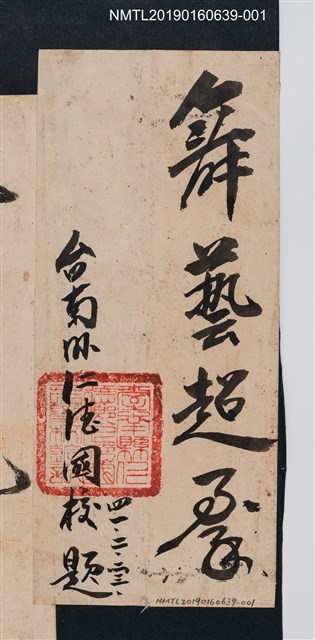 NMTL20190160639-001
舞藝超群
台南縣仁德國校題
四一.二.二三.
NMTL20190160639-001